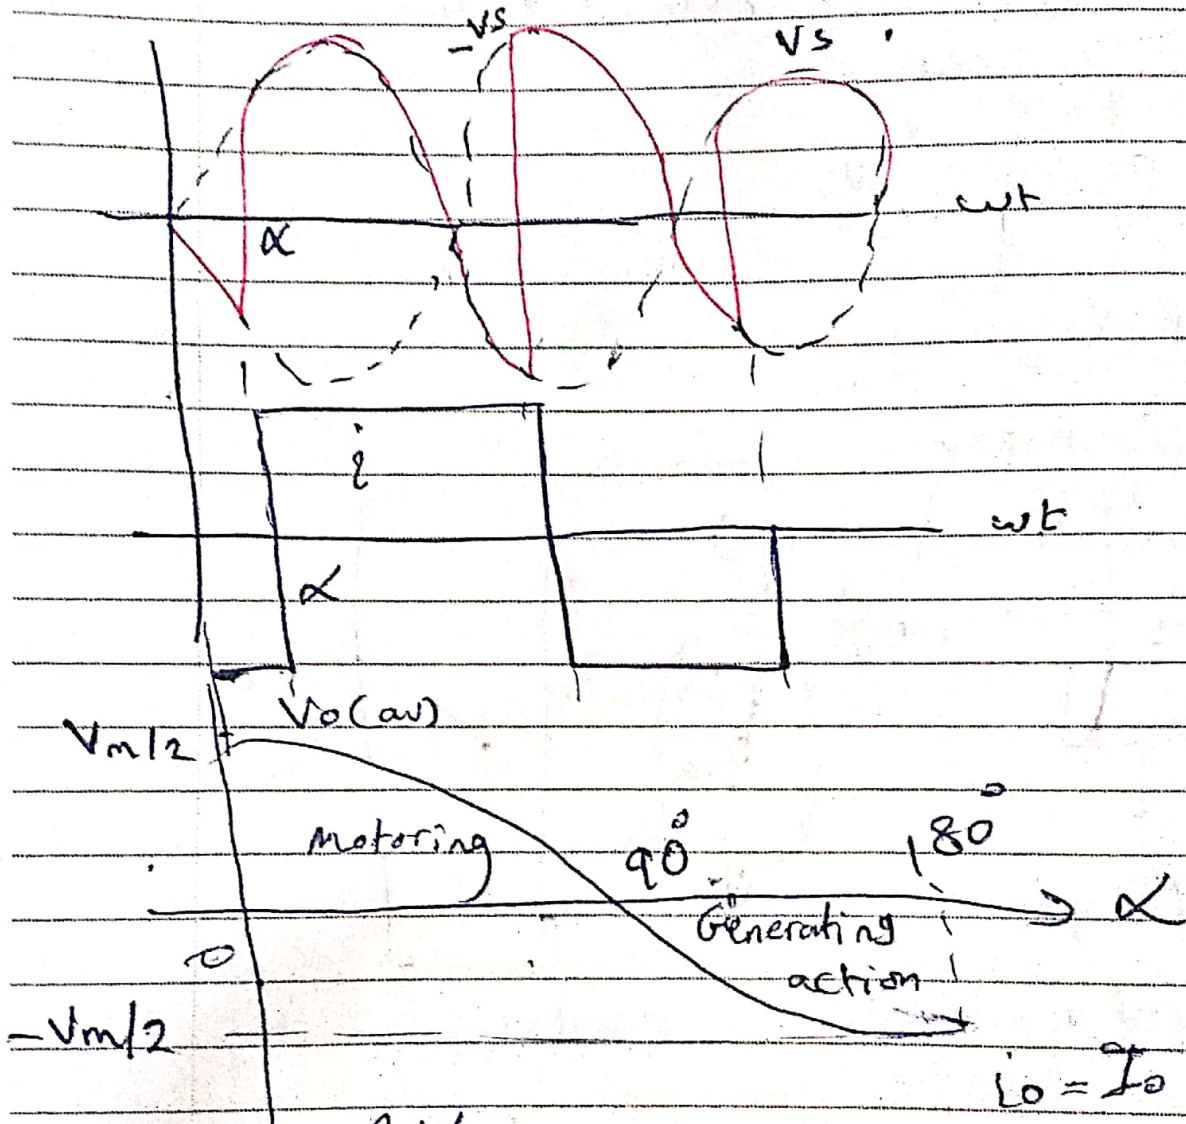 -Vs
Vs
α
wt
i
wt
α
Vo(av)
Vm/2
Motoring
90°
180°
α
Generating
action
0
-Vm/2
io = Io